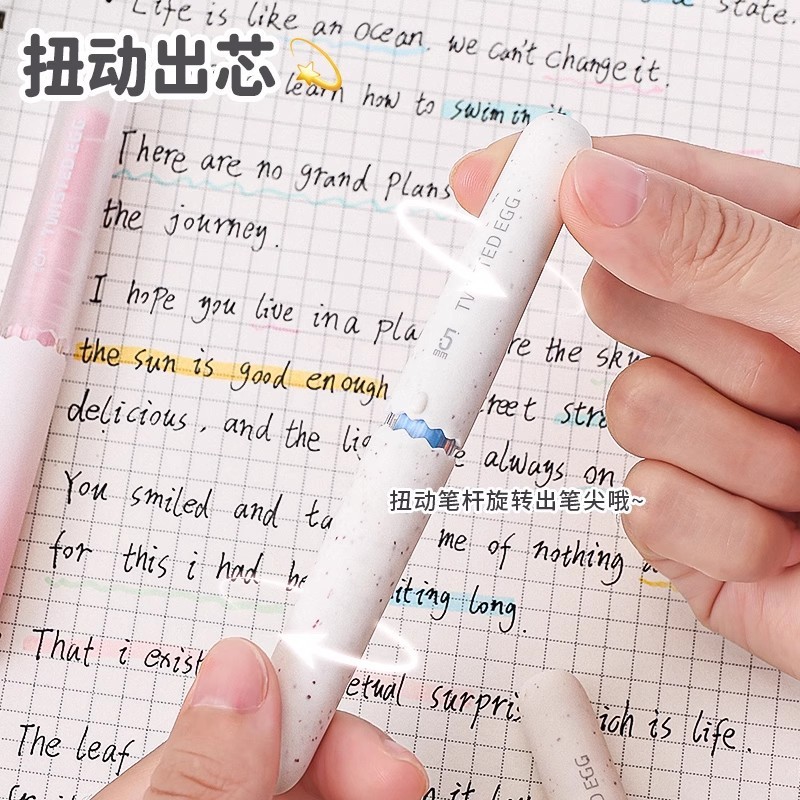 扭动出芯
Life is like an ocean. we can't change it.
state.
learn how to swim in it
There are no grand plans
the journey.
I hope you live in a pla re the sky
the sun is good enough reet str
delicious, and the lig e always on
扭动笔杆旋转出笔尖哦~
You smiled and ta me of nothing
for this i had be iting long.
That i exist etual surpris ich is life.
The leaf
TWISTED EGG
5
mm
TWISTED EGG
D EGG